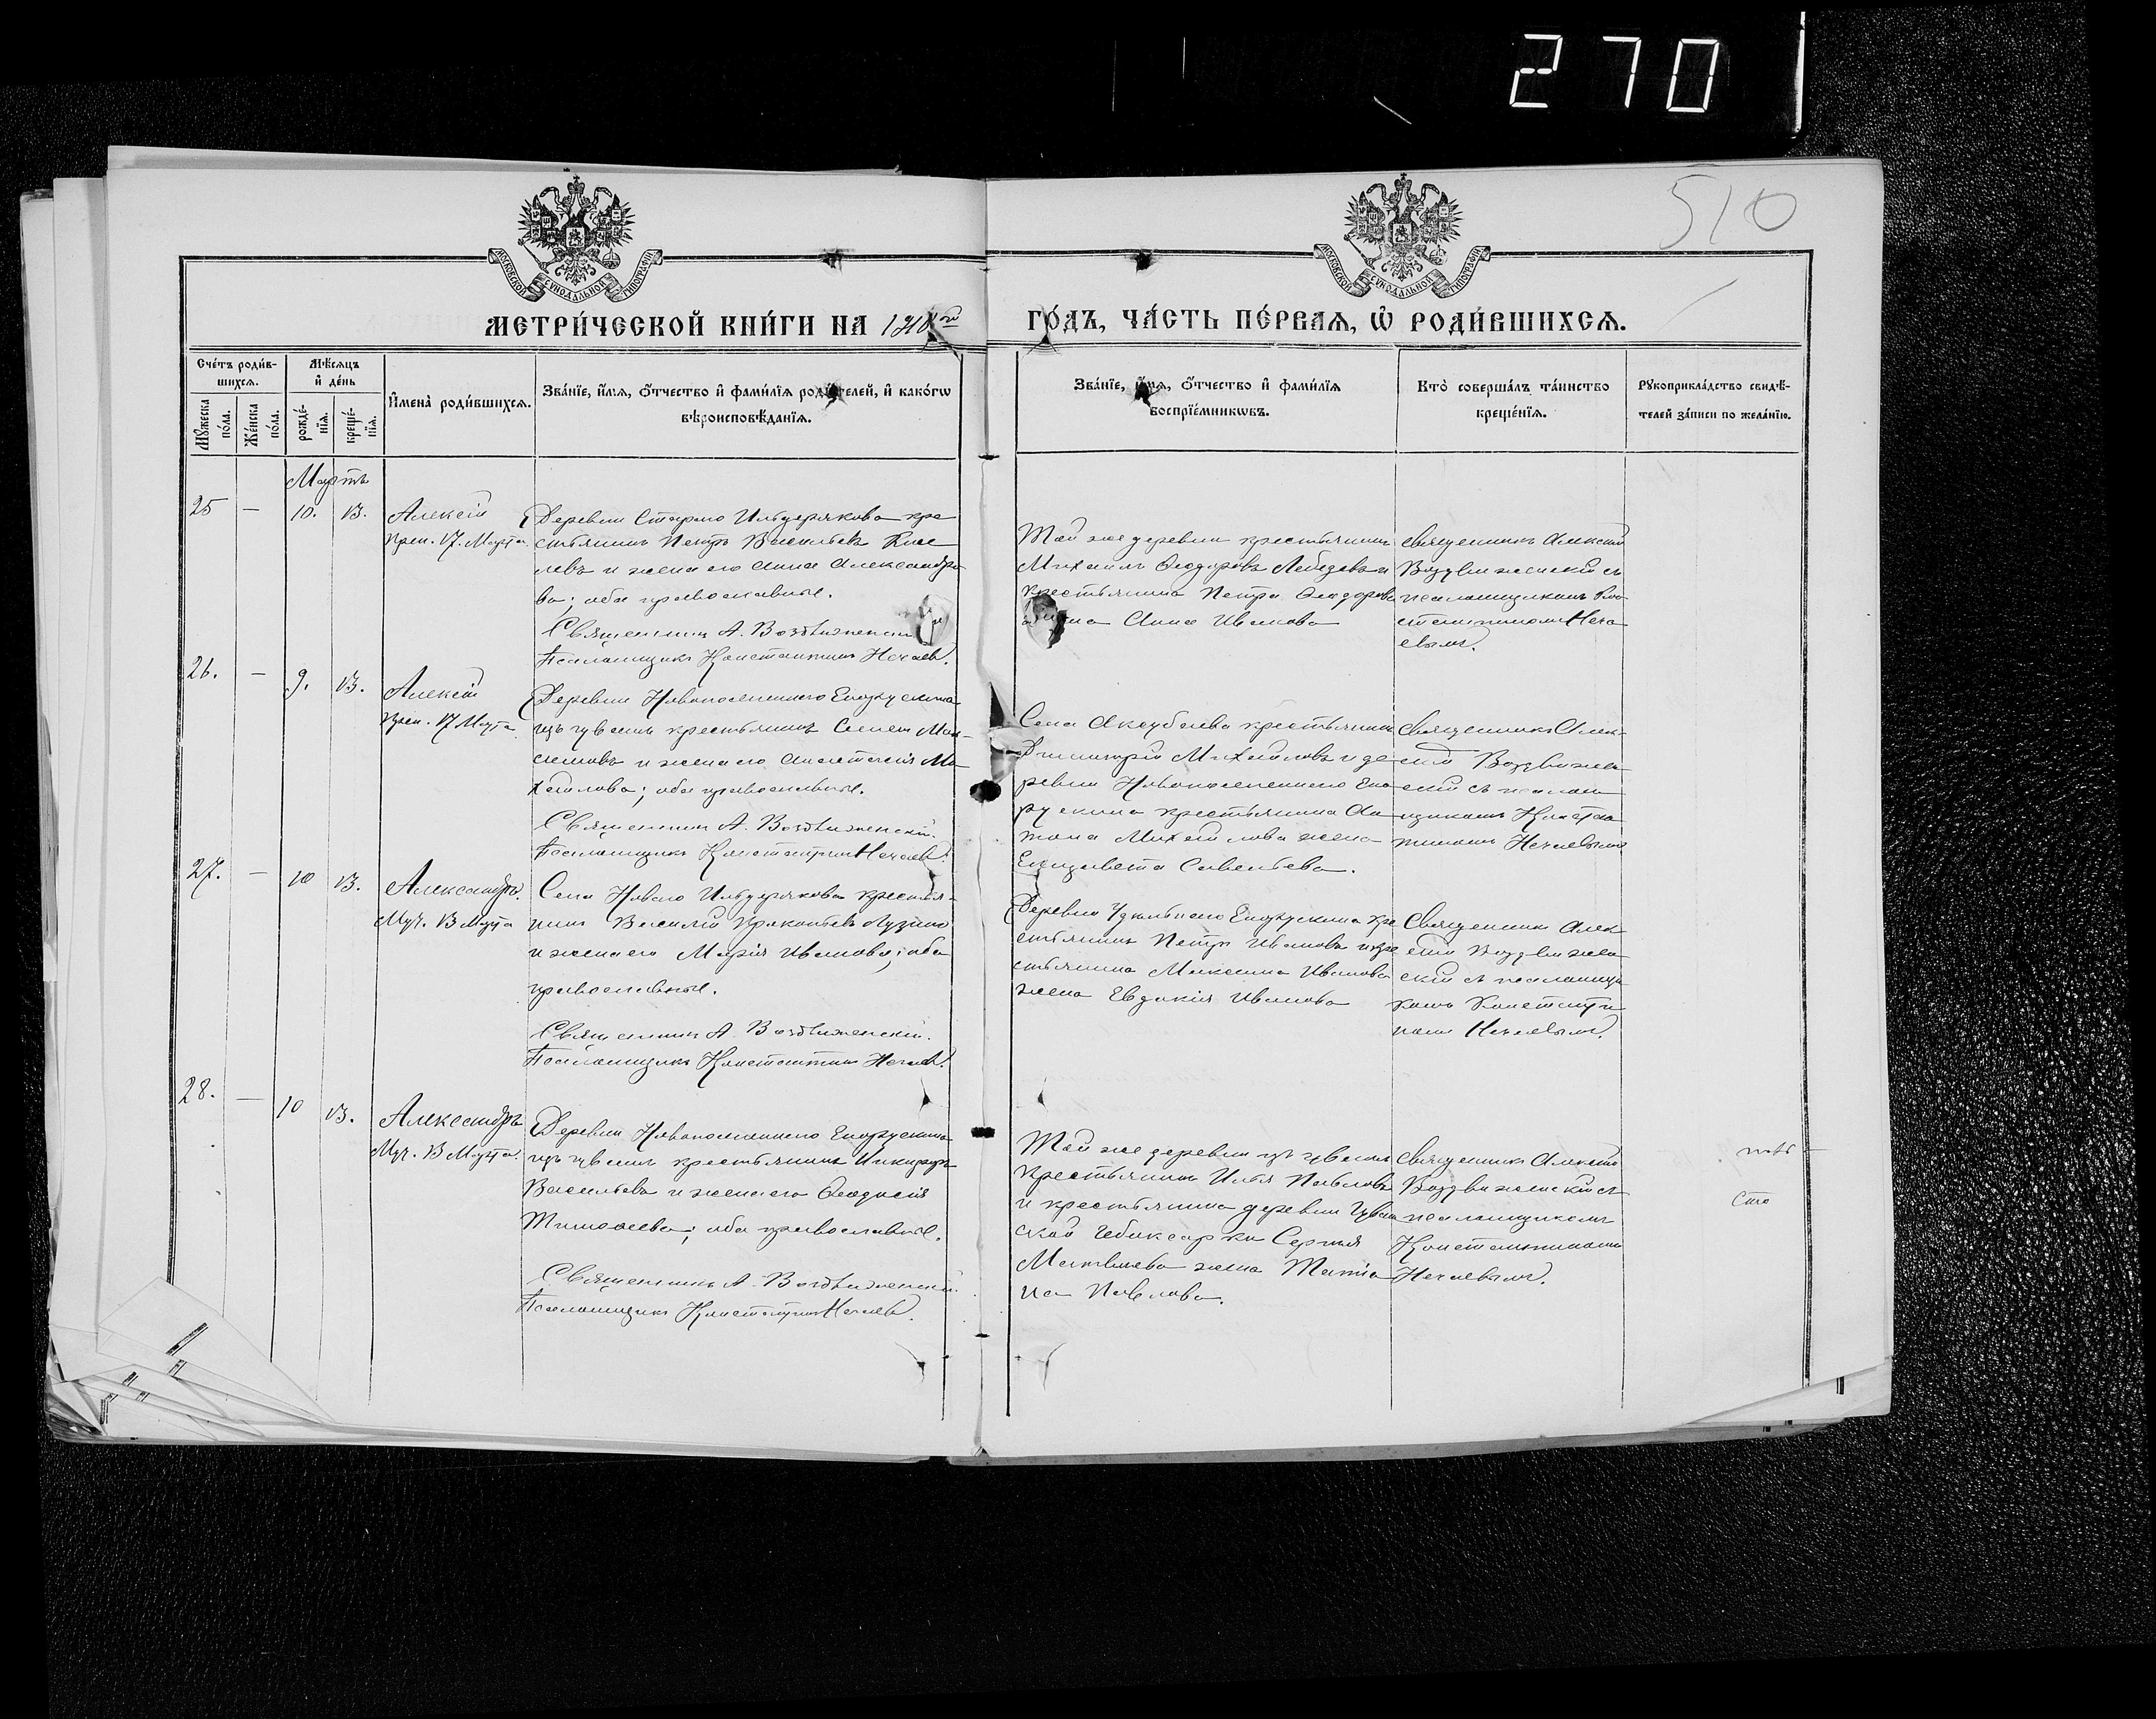 270
510
МОСКОВСКОЙ СѴНОДАЛЬНОЙ ТИПОГРАФІИ
МОСКОВСКОЙ СѴНОДАЛЬНОЙ ТИПОГРАФІИ
МЕТРИ́ЧЕСКОЙ КНИ́ГИ НА
ГО́ДЪ, ЧА́СТЬ ПЕ́РВАѦ, Ѡ҆ РОДИ́ВШИХСѦ.
Сче́тъ роди́в-
шихсѧ.
Мꙋ́жеска по́ла.
Же́нска по́ла.
Мѣ́сѧцъ
и҆ де́нь
рожде́-
нїѧ.
креще́-
нїѧ.
И҆мена̀ роди́вшихсѧ.
Зва́нїе, и҆́мѧ, ѻ҆́тчество и҆ фами́лїѧ роди́телей, и҆ како́гѡ
вѣроисповѣ́данїѧ.
Зва́нїе, и҆́мѧ, ѻ҆́тчество и҆ фами́лїѧ
воспрїе́мникѡвъ.
Кто̀ соверша́лъ та́инство
креще́нїѧ.
Рꙋкоприкла́дство свидѣ́-
телей за́писи по жела́нїю.
Мартъ
25 — 10. 13. Алексій
Преп. 17. Марта
Деревни Стараго Ильдерякова кре
стьянинъ Петръ Васильевъ Кисе
левъ и жена его Анна Александро
ва; оба православные.
Священникъ А. Воздвиженскій
Псаломщикъ Константинъ Нечаевъ.
Той же деревни крестьянинъ
Михаилъ Ѳеодоровъ Лебедевъ и
крестьянина Петра Ѳеодорова
жена Анна Иванова
Священникъ Алексій
Воздвиженскій съ
псаломщикомъ Кон
стантиномъ Неча
евымъ.
26. — 9. 13. Алексій
Преп. 17 Марта
Деревни Новопоселеннаго
изъ чувашъ крестьянинъ Семенъ Мак
симовъ и жена его Анастасія Ми
хайлова; оба православные.
Священникъ А. Воздвиженскій.
Псаломщикъ Константинъ Нечаевъ.
Села Аксубаева крестьянинъ
Димитрій Михайловъ и де
ревни Новопоселеннаго
крестьянина Ан
тона Михайлова жена
Елизавета Савельева.
Священникъ Алек
сій Воздвижен
скій съ псалом
щикомъ Констан
тиномъ Нечаевымъ
27. — 10 13. Александръ.
Муч. 13 Марта
Села Новаго Ильдерякова крестья
нинъ Василій Прокопьевъ
и жена его Марія Иванова; оба
православные.
Священникъ А. Воздвиженскій.
Псаломщикъ Константинъ Нечаевъ.
Деревни Удѣльнаго Енорускина кре
стьянинъ Петръ Ивановъ и кре
стьянина Максима Иванова
жена Евдокія Иванова
Священникъ Алек
сій Воздвижен
скій съ псаломщи
комъ Константи
номъ Нечаевымъ.
28. — 10 13. Александръ
Муч. 13 Марта.
Деревни Новопоселеннаго
изъ чувашъ крестьянинъ Никифоръ
Васильевъ и жена его Ѳеодосія
Тимоѳеева; оба православные.
Священникъ А. Воздвиженскій.
Псаломщикъ Константинъ Нечаевъ.
Той же деревни изъ чувашъ
крестьянинъ Илья Павловъ
и крестьянина деревни Чуваш
ской Чебоксарки Сергія
Матвѣева жена Татія
на Павлова.
Священникъ Алексій
Воздвиженскій съ
псаломщикомъ
Константиномъ
Нечаевымъ.